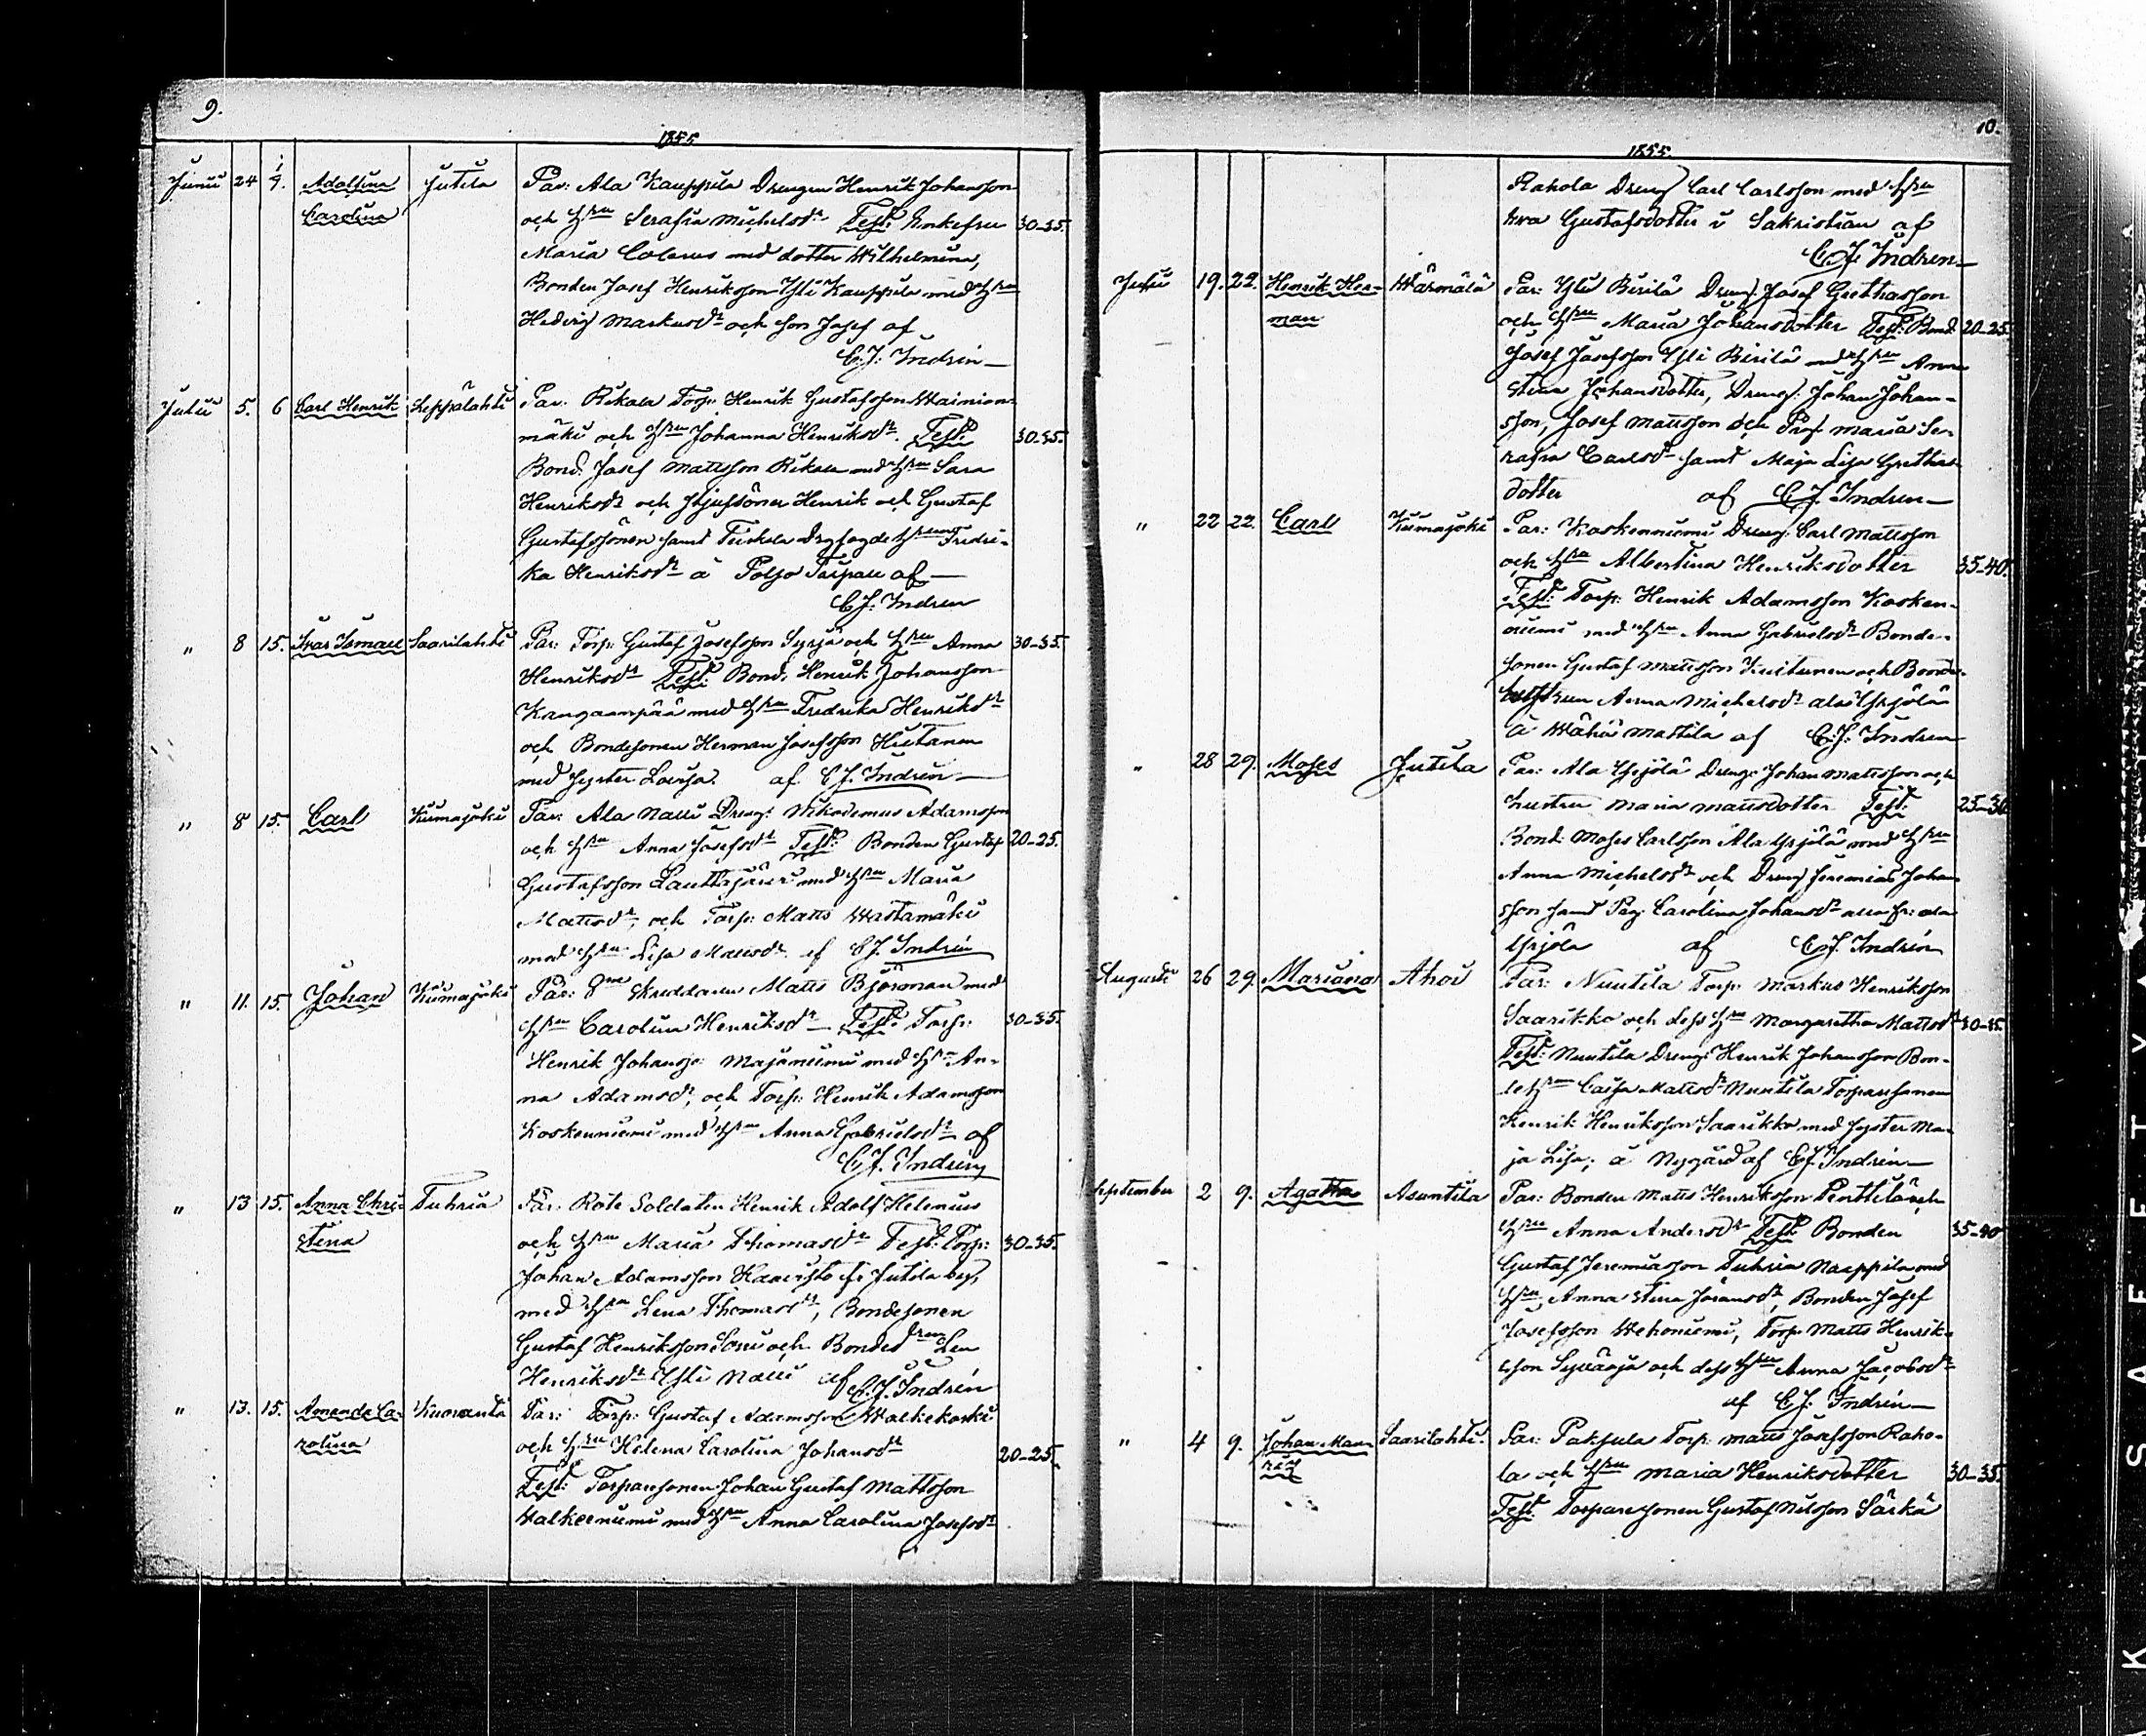 9.
1855
Junii 24 1/7. Adolfina Jutila Par: Ala Kauppila Drengen Henrik Johansson
Carolina och Hu Serafia Michelsdr Test: Enkefru 30-35.
Maria Colerus med dotter Wilhelmina,
Bonden Josef Henriksson Yli Kauppila med Hu
Hedvig Markusdr och son Josef af
C.J. Indrén
Julii 5. 6 Carl Henrik Leppälahti Par: Rikala Torp: Henrik Gustafsson Wainion-
mäki och Hu Johanna Henriksdr. Test: 30-35.
Bond. Josef Mattsson Rikala med Hu Sara
Henriksdr och styfsöner Henrik och Gustaf
Gustafssöner samt Teiskola Drgfogde Hu Fredri-
ka Henriksdr à Poljo Torpare af
C.J. Indrén
" 8 15. Ivar Ismael Saarilahti Par: Torp: Gustaf Josefsson Syrjä och Hu Anna 30-35.
Henriksdr Test: Bond. Henrik Johansson
Kangaanpää med Hu Fredrika Henriksdr
och Bondesonen Herman Josefsson Hietanen
med syster Lovisa. af C.J. Indrén
" 8 15. Carl Kiimajoki Par: Ala Nalli Dreng: Nikodemus Adamsson
och Hu Anna Josefsdr Test: Bonden Gustaf 20-25.
Gustafsson Lauttajärvi med Hu Maria
Mattsdr, och Torp: Matts Wastamäki
med Hu Lisa Mattsdr. af C.J. Indrén
" 11. 15. Johan Kiimajoki Par: Sne Skreddaren Matts Björnman med
Hu Carolina Henriksdr Test: Torp: 30-35.
Henrik Johansson Majaniemi med Hu An-
na Adamsdr, och Torp: Henrik Adamsson
Koskenniemi med Hu Anna Gabrielsdr af
C.J. Indrén
" 13 15. Anna Chri- Tuhria Par: Rote Soldaten Henrik Adolf Helenius
stina och Hu Maria Thomasdr Test: Torp: 30-35.
Johan Adamsson Haavisto fr Jutila by,
med Hu Lena Thomasdr, Bondesonen
Gustaf Henriksson Soni och Bonded Lena
Henriksdr Yli Nalli af C.J. Indrén
" 13. 15. Amanda Ca- Kuoranta Par: Torp: Gustaf Adamsson Walkekoski
rolina och Hu Helena Carolina Johansdr 20-25.
Test: Torparesonen Johan Gustaf Mattsson
Walkeeniemi med Hu Anna Carolina Josefsdr
10.
1855.
Rahola Dreng Carl Carlsson med Hu
Eva Gustafsdotter i Sakristian af
C.J. Indrén
Julii 19. 22. Henrik Her- Wärmälä Par: Yli Birilä Dreng Josef Grethasson
man och Hu Maria Johansdotter Test: Bond. 20-25.
Josef Josefsson Yli Birilä med Hu Anna
Stina Johansdotter, Dreng: Johan Johan-
sson, Josef Mattsson och Pig: Maria Se-
rafia Carlsdr samt Maja Lisa Grethas-
dotter af C.J. Indrén
" 22 22. Carl Kiimajoki Par: Koskenniemi Dreng: Carl Mattsson
och Hu Albertina Henriksdotter 35-40.
Test: Torp: Henrik Adamsson Kosken-
niemi med Hu Anna Gabrielsdr Bonde-
sonen Gustaf Mattsson Kuitunen och Bonde-
hustrun Anna Michelsdr ala Yrjölä
à Wähä Mattila af C.J. Indrén
" 28 29. Moses Jutila Par: Ala Yrjölä Dreng: Johan Mattsson och
hustru Maria Mattsdotter Test: 25-30
Bond: Moses Carlsson Ala Yrjölä med Hu
Anna Michelsdr och Dreng Jeremias Johan-
sson samt Pig: Carolina Johansdr alla fr: ala
Yrjölä af C.J. Indrén
Augusti 26 29. Mariana Ahoi Par: Nuutila Torp: Markus Henriksson
Saarikko och dess Hu Margaretha Mattsdr 30-35.
Test: Nuutila Dreng: Henrik Johansson Bon-
deHu Caisa Mattsdr Nuutila Torparesonen
Henrik Henriksson Saarikko med syster Ma-
ja Lisa; à Nygård af C.J. Indrén
September 2 9. Agatha Asuntila Par: Bonden Matts Henriksson Penttilä och
Hu Anna Andersdr Test: Bonden 35-40
Gustaf Jeremiasson Tuhria Naappila med
Hu Anna Stina Johansdr, Bonden Josef
Josefsson Wehoniemi, Torp: Matts Henrik-
sson Syvärja och dess Hu Anna Jacobsdr
af C.J. Indrén
" 4 9. Johan Man- Saarilahti. Par: Paksula Torp: Matts Josefsson Raho-
la och Hu Maria Henriksdotter 30-35.
Test: Torparesonen Gustaf Nilsson Särkä